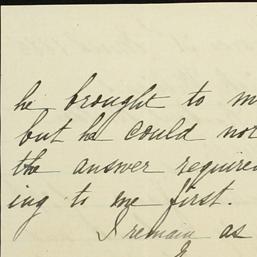 he brought to m
but he could not
the answer require
ing to me first.
I remain as